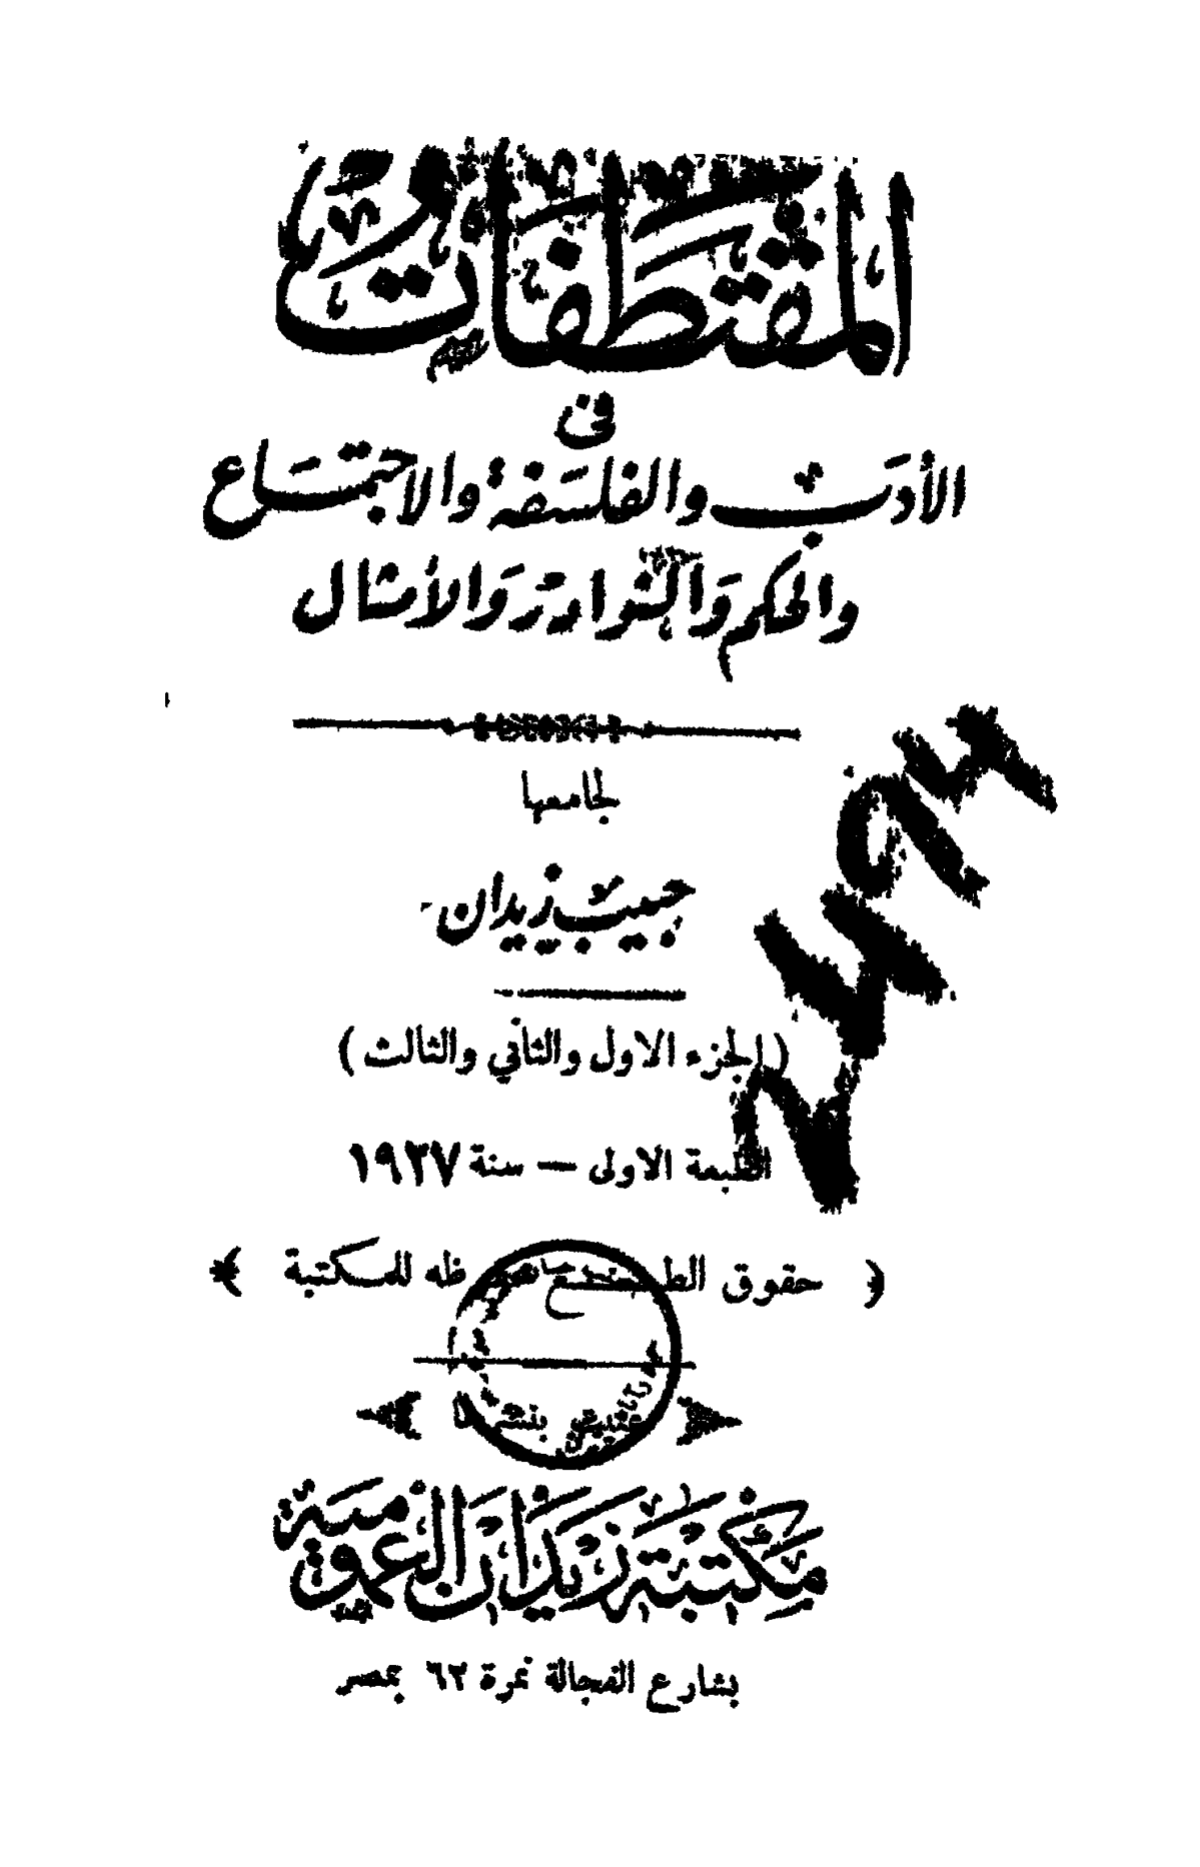 المقتطفات
في
الأدب والفلسفة والاجتماع
والحكم والنوادر والأمثال
لجامعها
حبيب زيدان
(الجزء الاول والثاني والثالث)
الطبعة الاولى — سنة ١٩٢٧
﴿ حقوق الطبع محفوظه للمكتبة ﴾
عنيت بنشرها
مكتبة زيدان العمومية
بشارع الفجالة نمرة ٦٢ بمصر